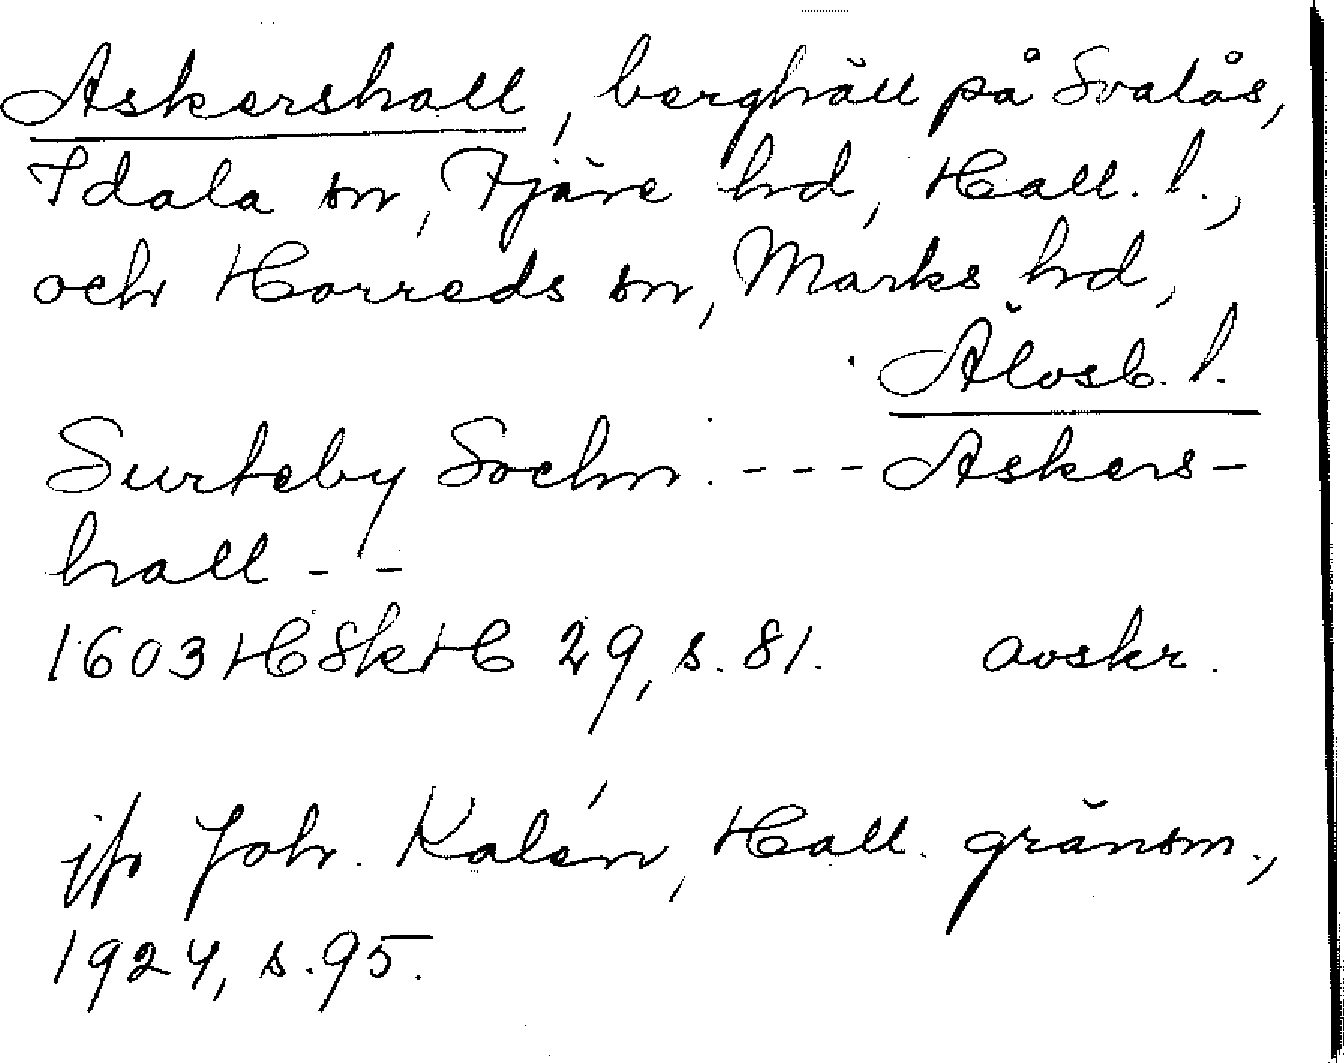 Askershall, berghäll på Svalås,
Idala sn, Fjäre hd, Hall. l.,
och Horreds sn, Marks hd,
Älvsb. l.
Surteby Sochn: --- Askers-
hall --
1603 HSkH 29, s. 81. avskr.
jfr Joh. Kalén, Hall. gränsm.,
1924, s. 95.